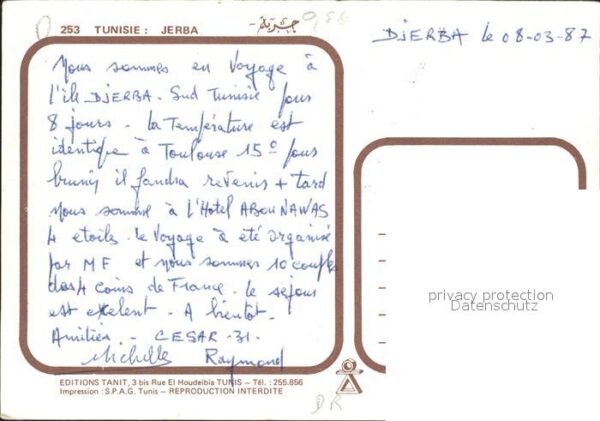 253 TUNISIE : JERBA جربة
DJERBA le 08-03-87
Nous sommes en Voyage à
l'île DJERBA. Sud Tunisie pour
8 jours - la Température est
identique à Toulouse 15° pour
brunir il faudra revenir + tard
Nous somme à l'Hotel ABOU NAWAS
4 etoiles. le Voyage à été organisé
par MF et nous sommes 10 couples
des 4 coins de France. le sejour
est exelent. A bientot.
Amitiés. - CESAR -31-
Michelle Raymond
EDITIONS TANIT, 3 bis Rue El Houdeibia TUNIS - Tél. : 255.856
Impression : S.P.A.G. Tunis - REPRODUCTION INTERDITE
DR
privacy protection
Datenschutz